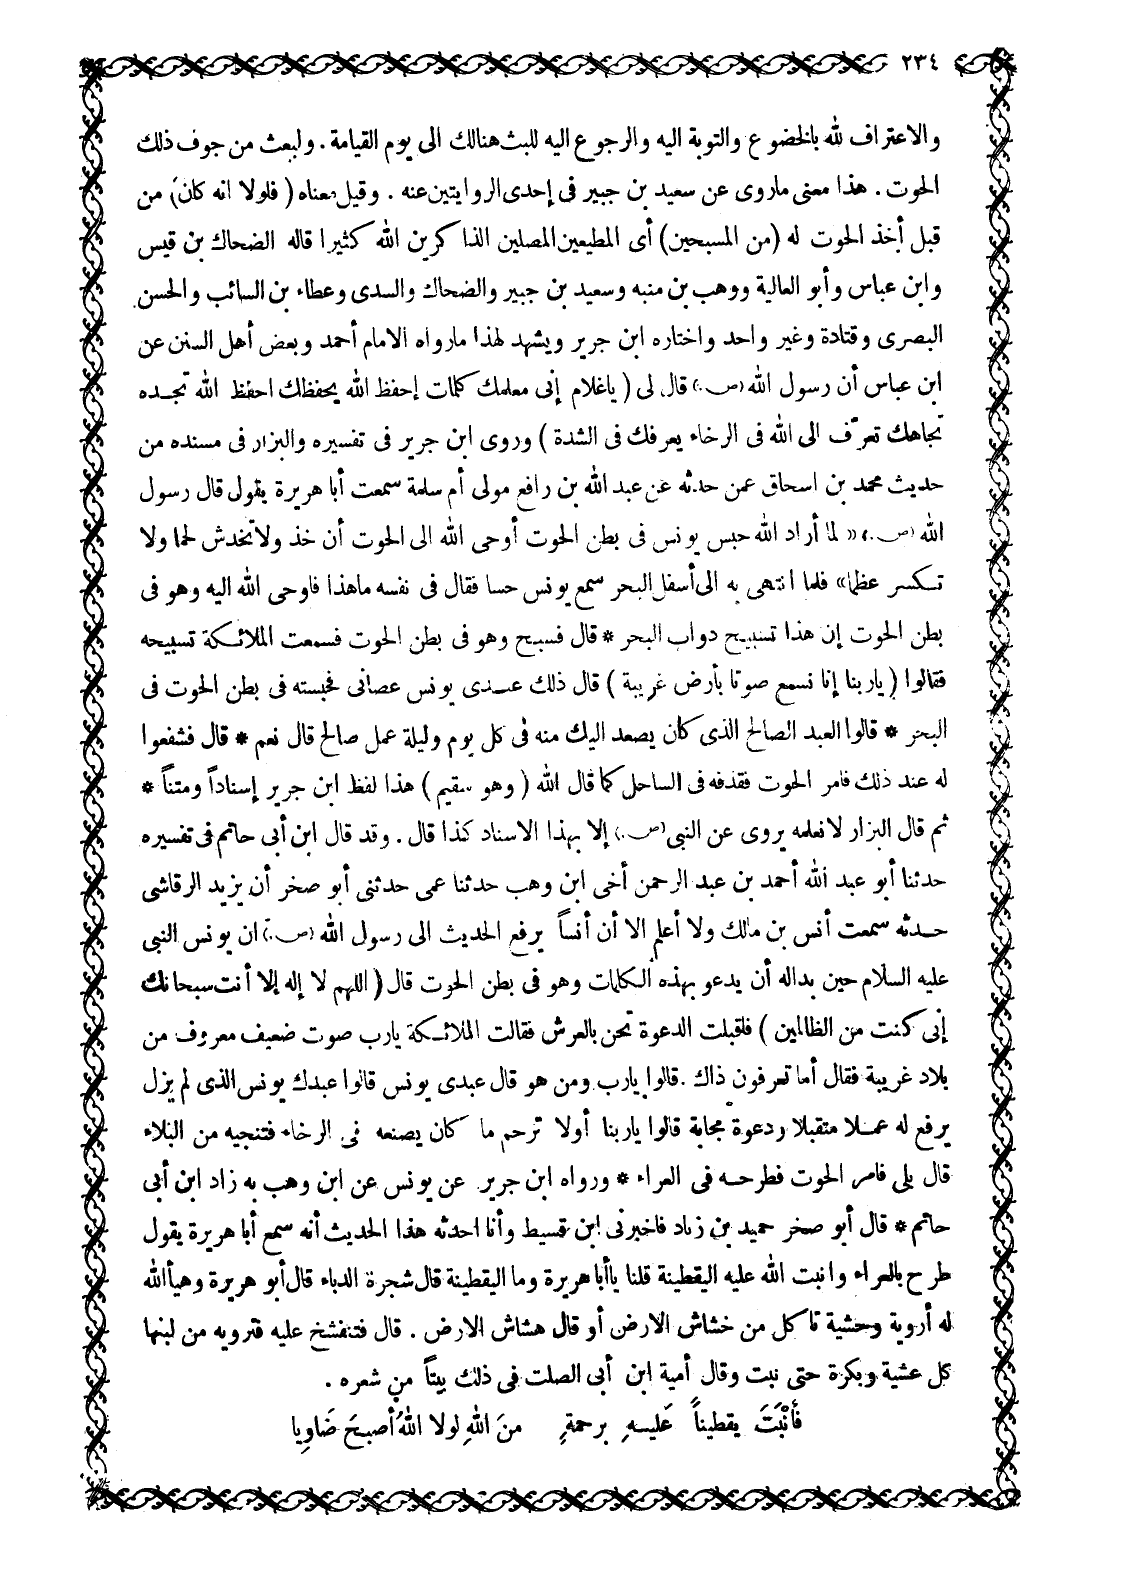 ٢٣٤
والاعتراف لله بالخضوع والتوبة اليه والرجوع اليه للبث هنالك الى يوم القيامة . ولبعث من جوف ذلك
الحوت . هذا معنى ماروى عن سعيد بن جبير فى إحدى الروايتين عنه . وقيل معناه ( فلولا انه كان ) من
قبل أخذ الحوت له (من المسبحين) أى المطيعين المصلين الذاكرين الله كثيرا قاله الضحاك بن قيس
وابن عباس وأبو العالية ووهب بن منبه وسعيد بن جبير والضحاك والسدى وعطاء بن السائب والحسن
البصرى وقتادة وغير واحد واختاره ابن جرير ويشهد لهذا مارواه الامام أحمد وبعض أهل السنن عن
ابن عباس أن رسول الله (ص.) قال لى ( ياغلام إنى معلمك كلمات إحفظ الله يحفظك احفظ الله تجده
تجاهك تعرّف الى الله فى الرخاء يعرفك فى الشدة ) وروى ابن جرير فى تفسيره والبزار فى مسنده من
حديث محمد بن اسحاق عمن حدثه عن عبد الله بن رافع مولى أم سلمة سمعت أبا هريرة يقول قال رسول
الله (ص.) « لما أراد الله حبس يونس فى بطن الحوت أوحى الله الى الحوت أن خذ ولا تخدش لحما ولا
تكسر عظما» فلما انتهى به الى أسفل البحر سمع يونس حسا فقال فى نفسه ماهذا فاوحى الله اليه وهو فى
بطن الحوت إن هذا تسبيح دواب البحر * قال فسبح وهو فى بطن الحوت فسمعت الملائكة تسبيحه
فقالوا ( ياربنا إنا نسمع صوتا بأرض غريبة ) قال ذلك عبدى يونس عصانى فحبسته فى بطن الحوت فى
البحر * قالوا العبد الصالح الذى كان يصعد اليك منه فى كل يوم وليلة عمل صالح قال نعم * قال فشفعوا
له عند ذلك فامر الحوت فقذفه فى الساحل كما قال الله ( وهو سقيم ) هذا لفظ ابن جرير إسناداً ومتناً *
ثم قال البزار لا نعلمه يروى عن النبى (ص.) إلا بهذا الاسناد كذا قال . وقد قال ابن أبى حاتم فى تفسيره
حدثنا أبو عبد الله أحمد بن عبد الرحمن أخى ابن وهب حدثنا عمى حدثنى أبو صخر أن يزيد الرقاشى
حدثه سمعت أنس بن مالك ولا أعلم الا أن أنساً يرفع الحديث الى رسول الله (ص.) ان يونس النبى
عليه السلام حين بداله أن يدعو بهذه الكلمات وهو فى بطن الحوت قال ( اللهم لا إله إلا أنت سبحانك
إنى كنت من الظالمين ) فلقبلت الدعوة تحن بالعرش فقالت الملائكة يارب صوت ضعيف معروف من
بلاد غريبة فقال أما تعرفون ذاك . قالوا يارب ومن هو قال عبدى يونس قالوا عبدك يونس الذى لم يزل
يرفع له عملا متقبلا ودعوة مجابة قالوا ياربنا أولا ترحم ما كان يصنعه فى الرخاء فتنجيه من البلاء
قال بلى فامر الحوت فطرحه فى العراء * ورواه ابن جرير عن يونس عن ابن وهب به زاد ابن أبى
حاتم * قال أبو صخر حميد بن زياد فاخبرنى ابن قسيط وأنا احدثه هذا الحديث أنه سمع أبا هريرة يقول
طرح بالعراء وانبت الله عليه اليقطينة قلنا ياأبا هريرة وما اليقطينة قال شجرة الدباء قال أبو هريرة وهيأ الله
له أروية وحشية تاكل من خشاش الارض أو قال هشاش الارض . قال فتنفشخ عليه فترويه من لبنها
كل عشية وبكرة حتى نبت وقال أمية ابن أبى الصلت فى ذلك بيتاً من شعره .
فَأَنْبَتَ يقطيناً عَليهِ برحمةٍ منَ اللهِ لولا اللهُ أصبحَ ضَاوِيا